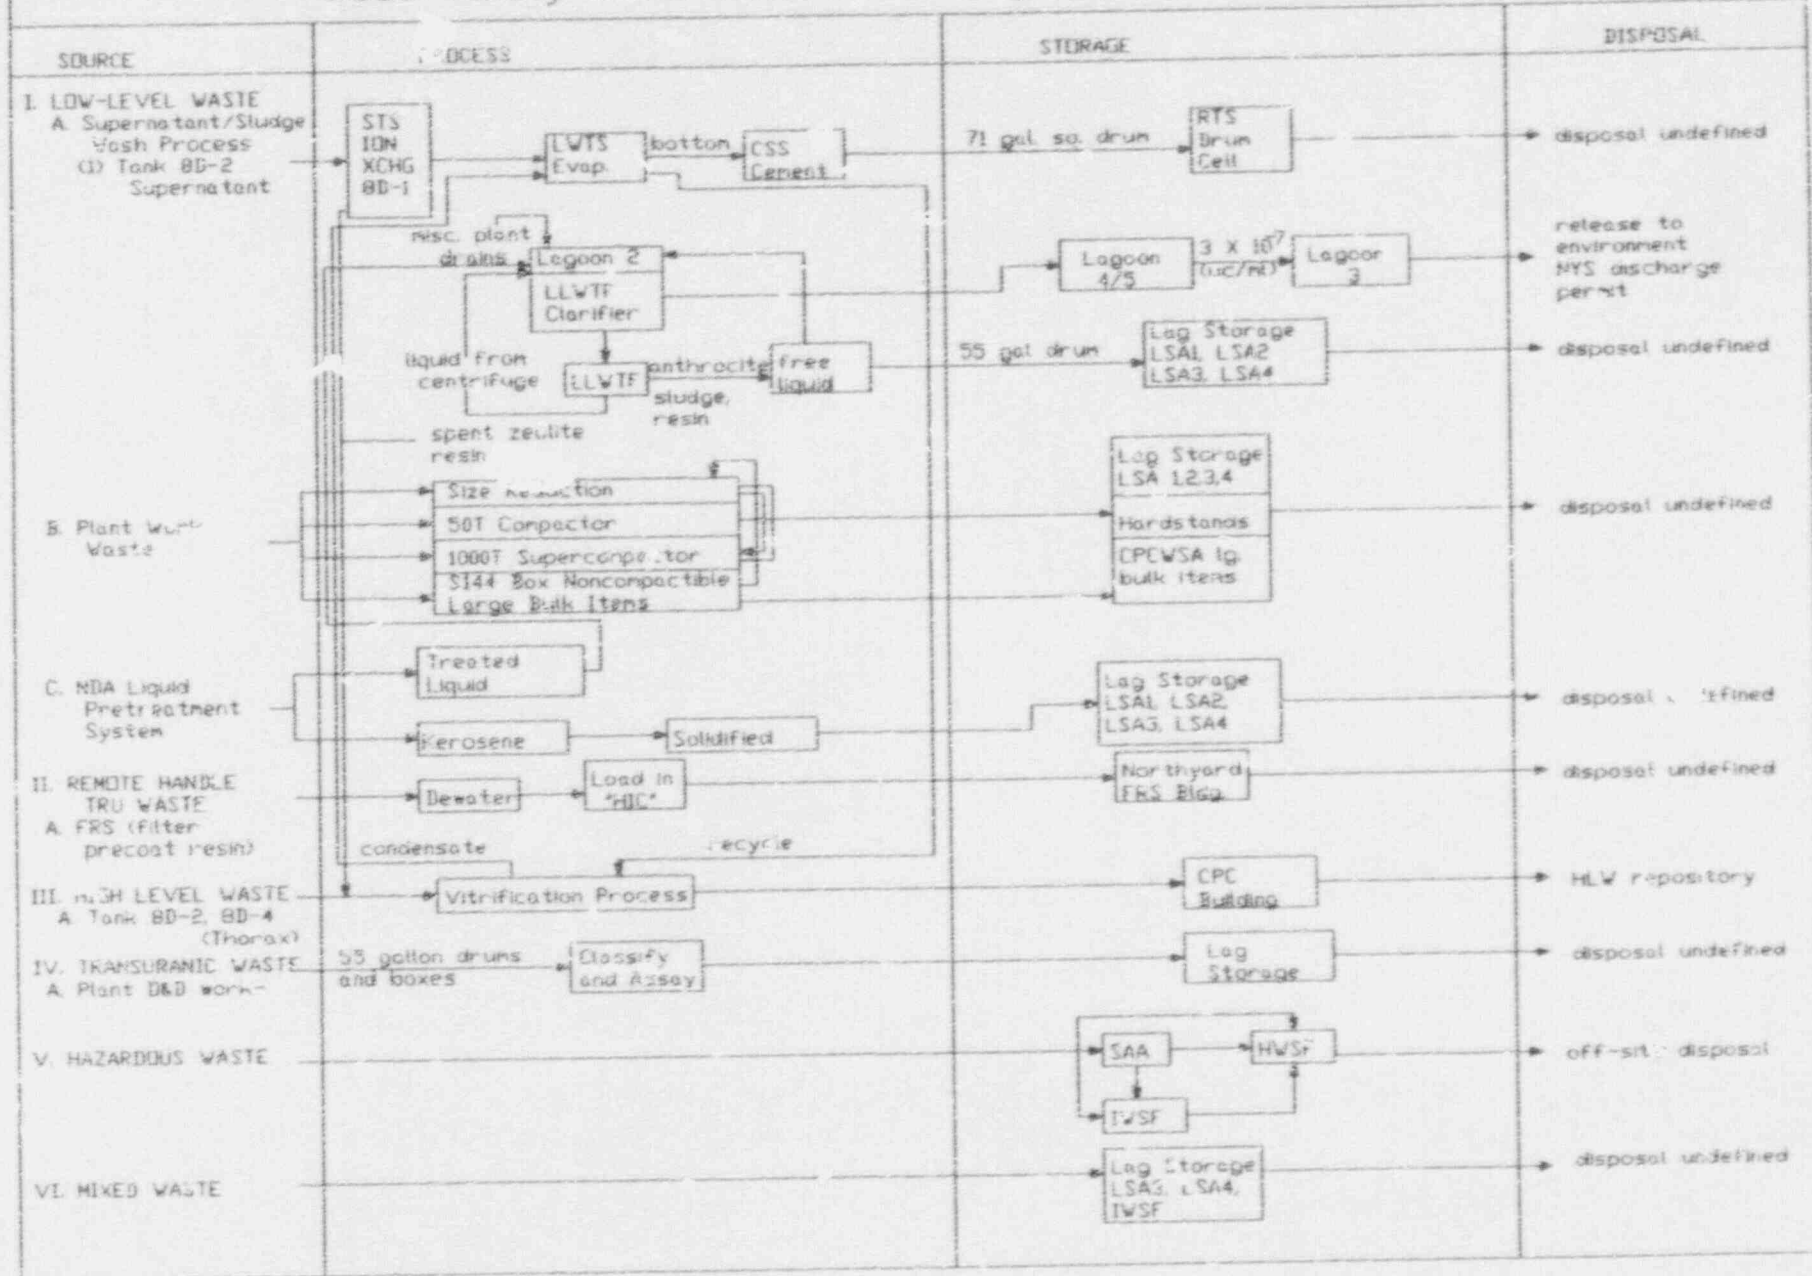 SOURCE
STORAGE
DISPOSAL
I. LOW-LEVEL WASTE
A. Supernatant/Sludge
Wash Process
(1) Tank 8D-2
Supernatant
STS
ION
XCHG
8D-1
LWTS
Evap.
bottom
CSS
Cement
71 gal. sq. drum
RTS
Drum
Cell
disposal undefined
misc. plant
drains
Lagoon 2
LLWTF
Clarifier
Lagoon
4/5
3 X 10-7
Lagoon
3
release to
environment
NYS discharge
permit
liquid from
centrifuge
LLWTF
anthrocite
sludge,
resin
free
liquid
55 gal drum
Lag Storage
LSA1, LSA2
LSA3, LSA4
disposal undefined
spent zeolite
resin
B. Plant
Waste
Size
50T Compactor
1000T
S144 Box Noncompactible
Large Bulk Items
Lag Storage
LSA 1,2,3,4
Hardstands
CPCWSA lg.
bulk items
disposal undefined
C. NDA Liquid
Pretreatment
System
Treated
Liquid
Kerosene
Solidified
Lag Storage
LSA1, LSA2,
LSA3, LSA4
disposal
II. REMOTE HANDLE
TRU WASTE
A. FRS (filter
precoat resin)
Dewater
Load in
"HIC"
Northyard
FRS Bldg.
disposal undefined
condensate
III. LEVEL WASTE
A. Tank 8D-2, 8D-4
(Thorax)
Vitrification Process
CPC
Building
HLW repository
IV. TRANSURANIC WASTE
A. Plant D&D work-
55 gallon drums
and boxes
Classify
and Assay
Lag
Storage
disposal undefined
V. HAZARDOUS WASTE
SAA
HWSF
IWSF
disposal
VI. MIXED WASTE
Lag Storage
LSA3, LSA4,
IWSF
disposal undefined